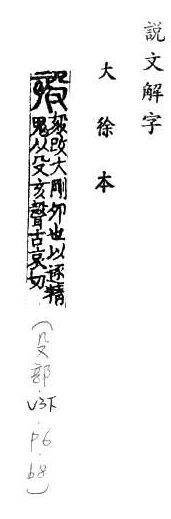 說文解字
大徐本
毅攺大剛卯也以逐精
鬼从殳亥聲古哀切
（殳部．V3下．P6．b8）